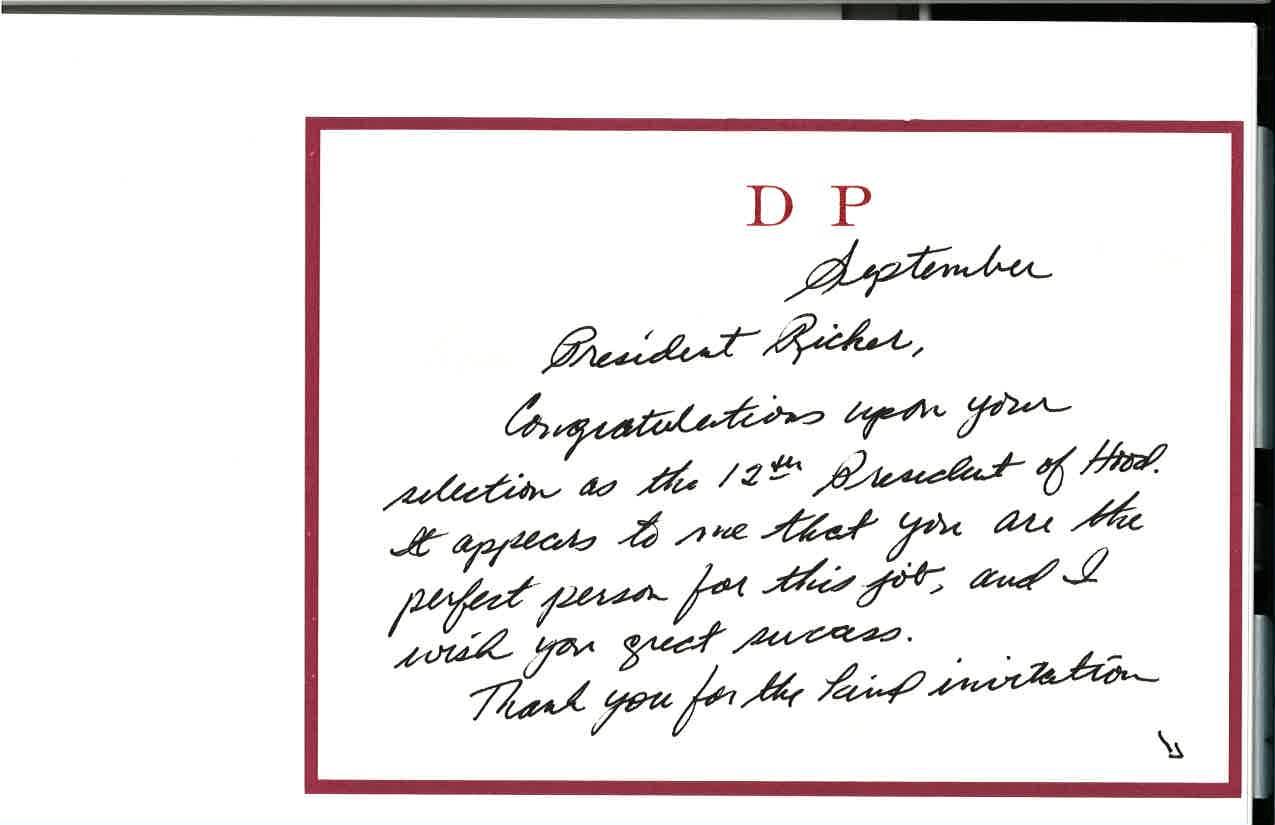 D P
September
President Ricker,
Congratulations upon your
selection as the 12th President of Hood.
It appears to me that you are the
perfect person for this job, and I
wish you great success.
Thank you for the kind invitation